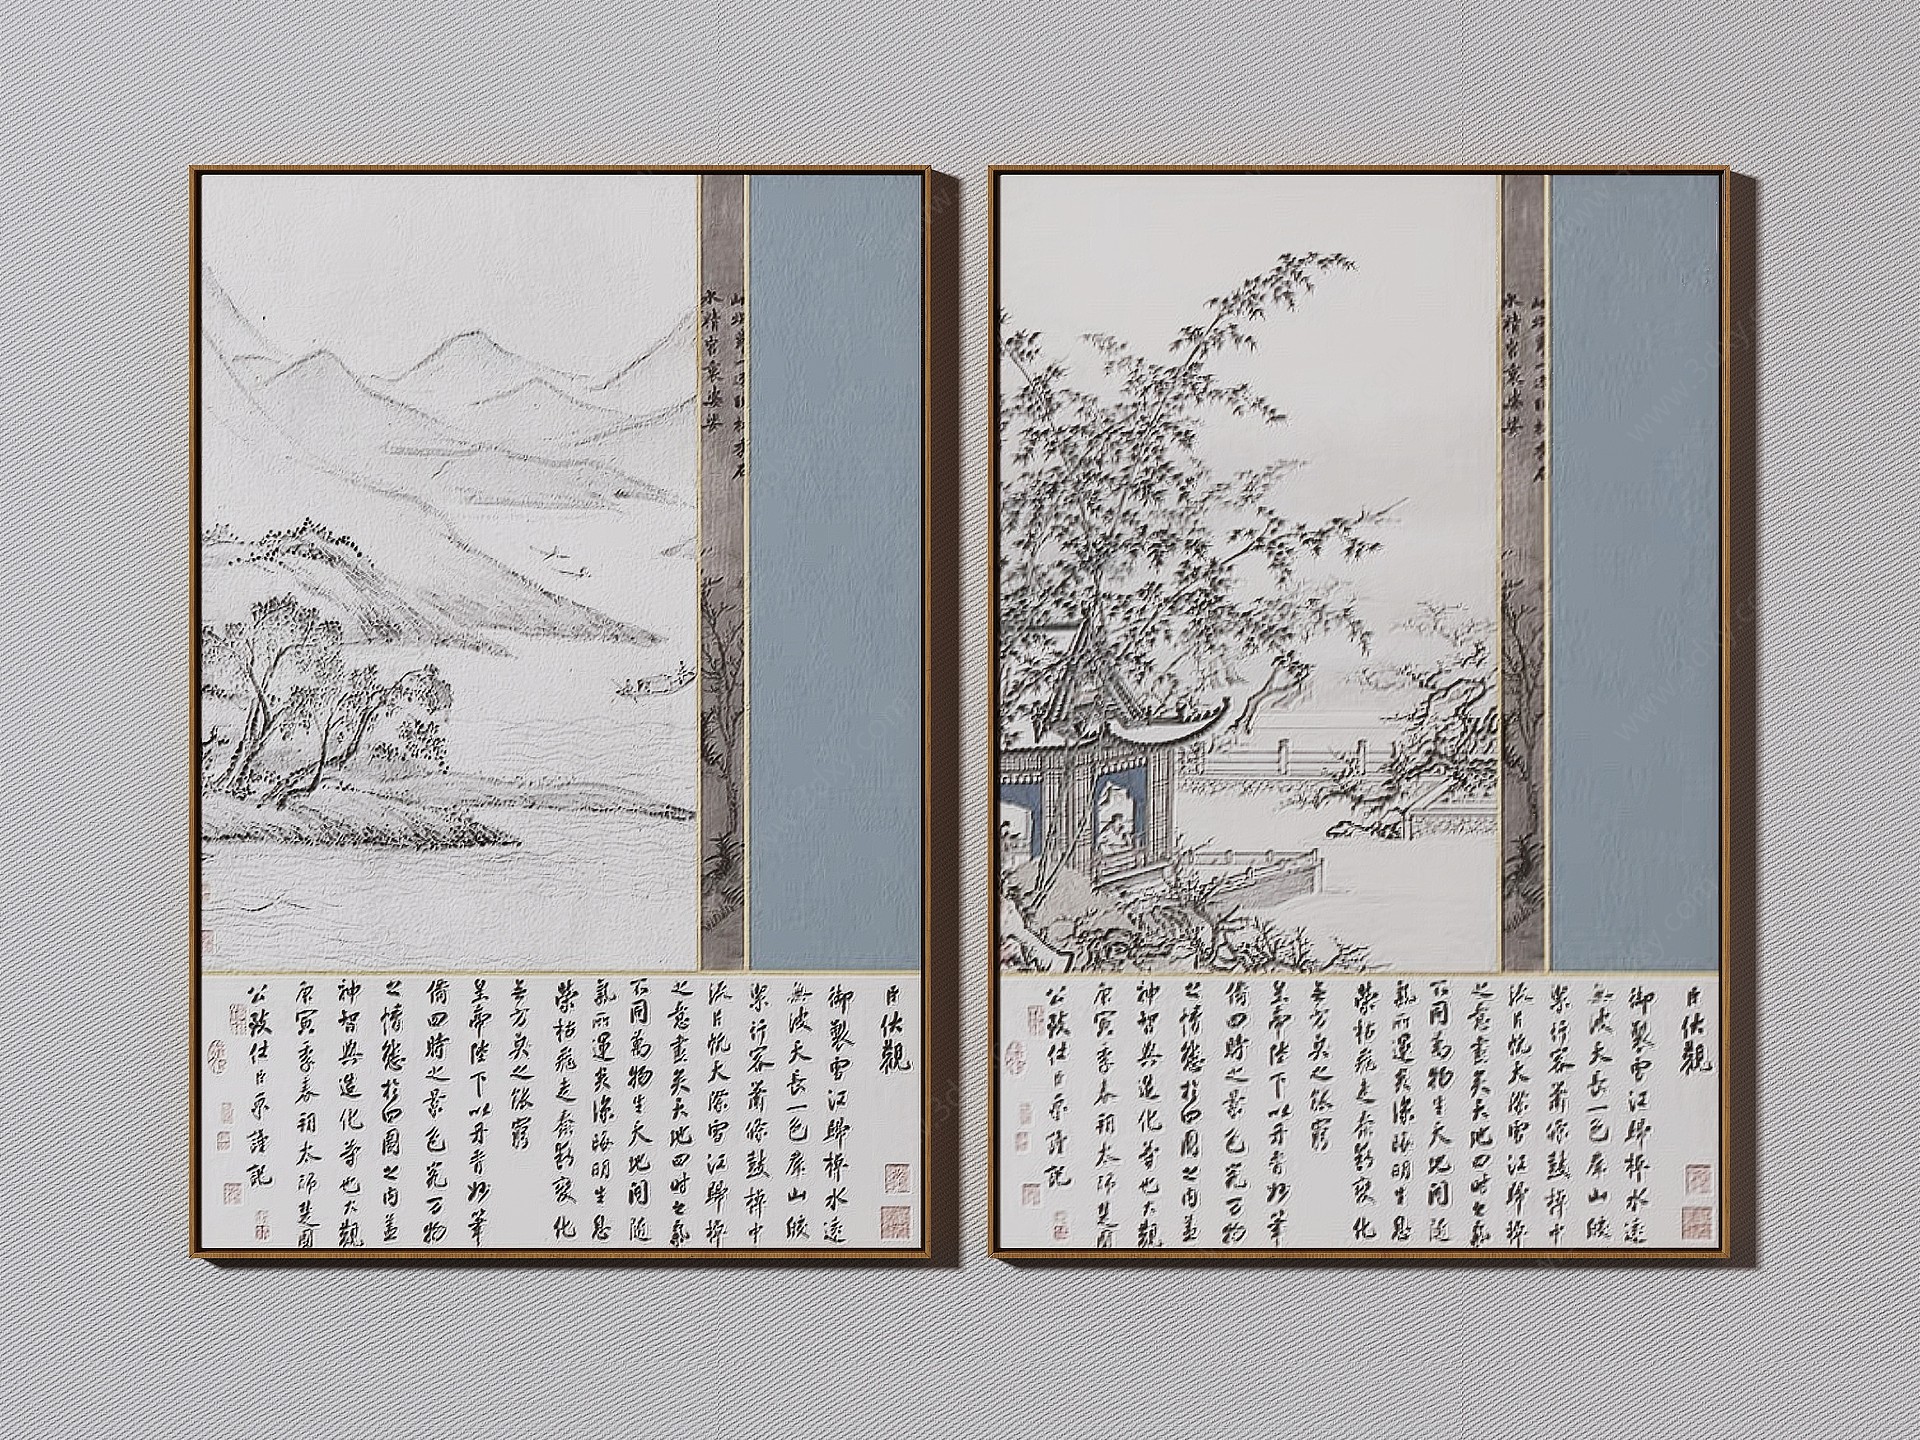 水精宮裏婆娑
臣伏觀
御製雪江歸棹水遠
無波天長一色群山皎
潔行客蕭條鼓棹中
流片帆天際雪江歸棹
之意盡矣天地四時之氣
不同萬物生天地間隨
氣所運炎涼晦明生息
榮枯飛走蠢動變化
無方莫之能窮
皇帝陛下以丹青妙筆
備四時之景色究萬物
之情態於四圖之內蓋
神智與造化等也大觀
庚寅季春朔太師楚國
公致仕臣京謹記
水精宮裏婆娑
臣伏觀
御製雪江歸棹水遠
無波天長一色群山皎
潔行客蕭條鼓棹中
流片帆天際雪江歸棹
之意盡矣天地四時之氣
不同萬物生天地間隨
氣所運炎涼晦明生息
榮枯飛走蠢動變化
無方莫之能窮
皇帝陛下以丹青妙筆
備四時之景色究萬物
之情態於四圖之內蓋
神智與造化等也大觀
庚寅季春朔太師楚國
公致仕臣京謹記